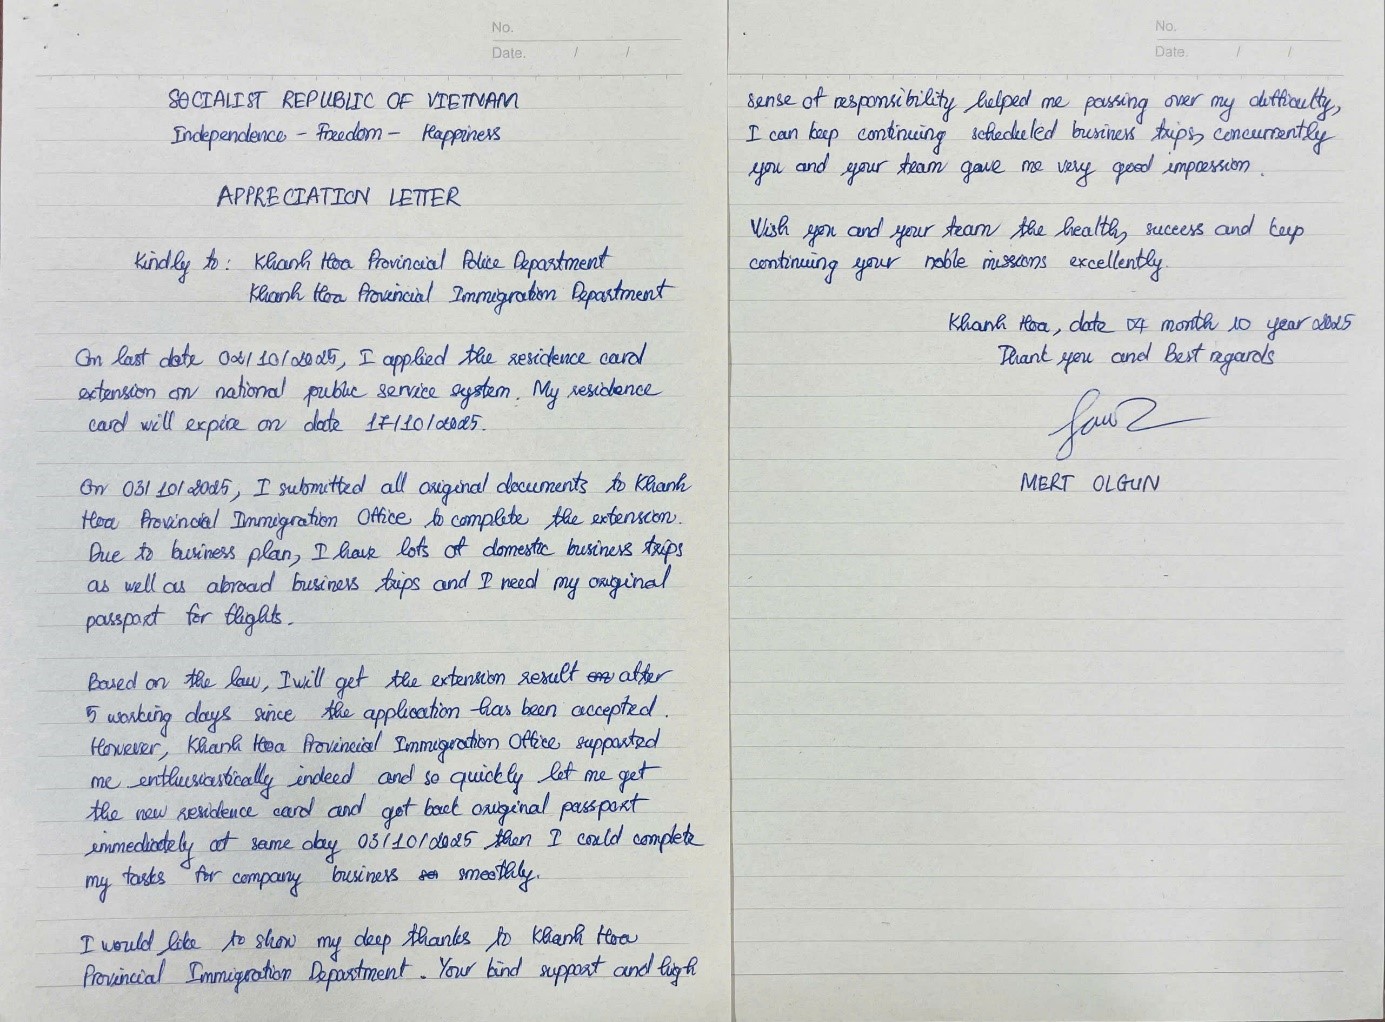 No.
Date. / /
SOCIALIST REPUBLIC OF VIETNAM
Independence - Freedom - Happiness
APPRECIATION LETTER
Kindly to: Khanh Hoa Provincial Police Department
Khanh Hoa Provincial Immigration Department
On last date 02/10/2025, I applied the residence card
extension on national public service system. My residence
card will expire on date 17/10/2025.
On 03/10/2025, I submitted all original documents to Khanh
Hoa Provincial Immigration Office to complete the extension.
Due to business plan, I have lots of domestic business trips
as well as abroad business trips and I need my original
passport for flights.
Based on the law, I will get the extension result after
5 working days since the application has been accepted.
However, Khanh Hoa Provincial Immigration Office supported
me enthusiastically indeed and so quickly let me get
the new residence card and got back original passport
immediately at same day 03/10/2025 then I could complete
my tasks for company business smoothly.
I would like to show my deep thanks to Khanh Hoa
Provincial Immigration Department. Your kind support and high
No.
Date. / /
sense of responsibility helped me passing over my difficulty,
I can keep continuing scheduled business trips, concurrently
you and your team gave me very good impression.
Wish you and your team the health, success and keep
continuing your noble missions excellently.
Khanh Hoa, date 04 month 10 year 2025
Thank you and Best regards
MERT OLGUN